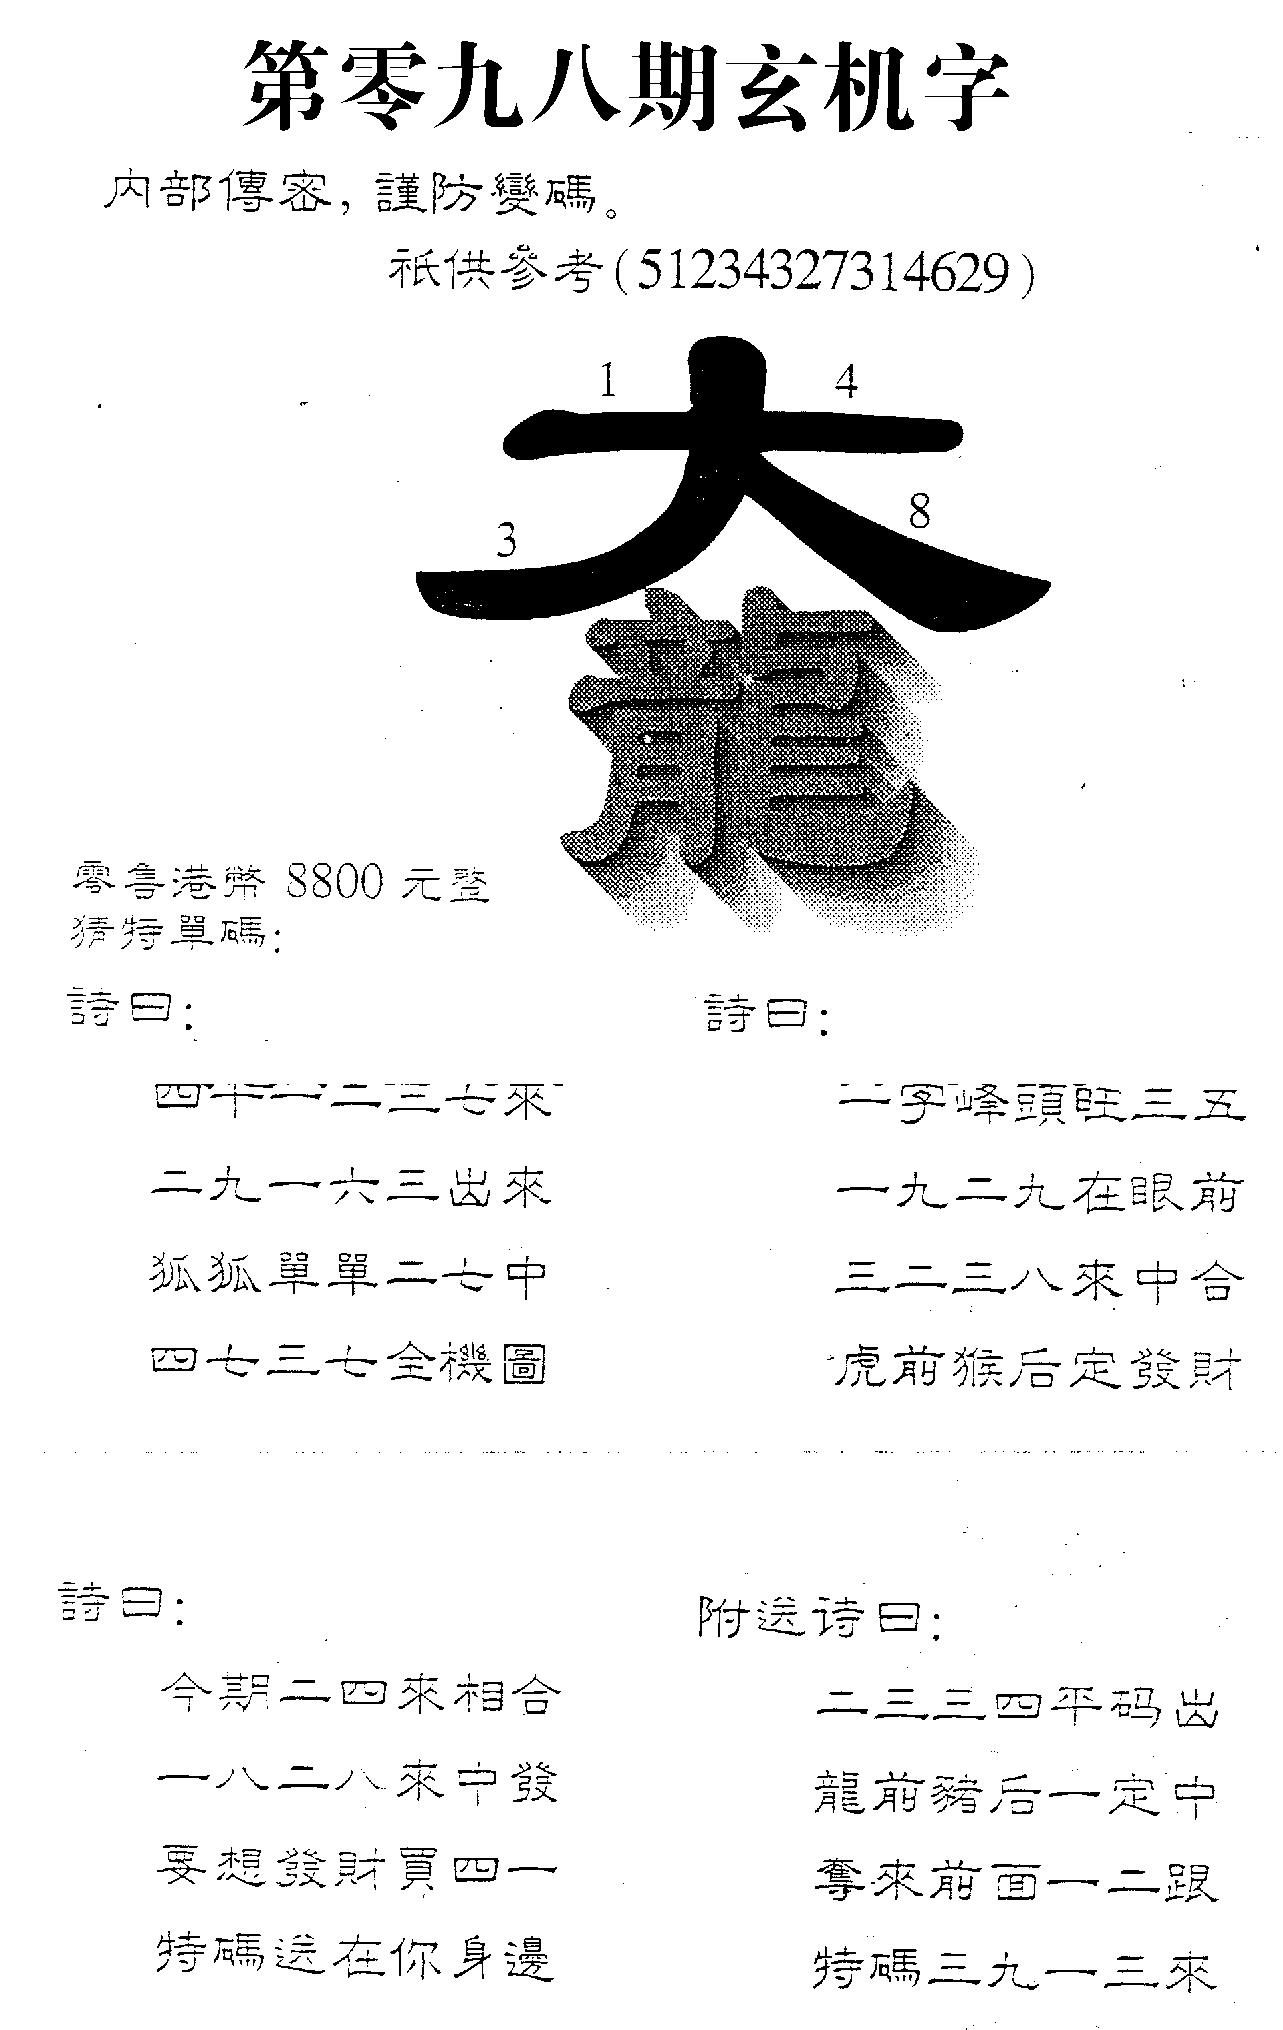 第零九八期玄机字
內部傳密，謹防變碼。
祇供參考(51234327314629)
1 4
大
3 8
龍
零售港幣 8800 元整
猜特單碼：
詩曰：
四十一二三七來
二九一六三出來
狐狐單單二七中
四七三七全機圖
詩曰：
一字峰頭旺三五
一九二九在眼前
三二三八來中合
虎前猴后定發財
詩曰：
今期二四來相合
一八二八來中發
要想發財買四一
特碼送在你身邊
附送诗曰：
二三三四平码出
龍前豬后一定中
奪來前面一二跟
特碼三九一三來